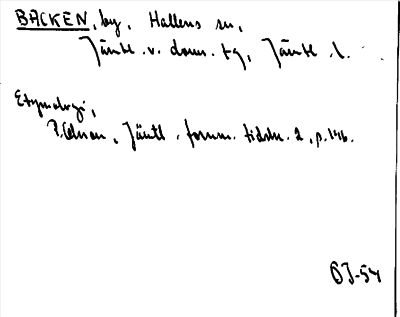 BACKEN, by, Hallens sn,
Jämtl. v. doms. tg, Jämtl. l.
Etymologi,
P. Olsson, Jämtl. fornm. tidskr. 2, p. 146.
OJ-54